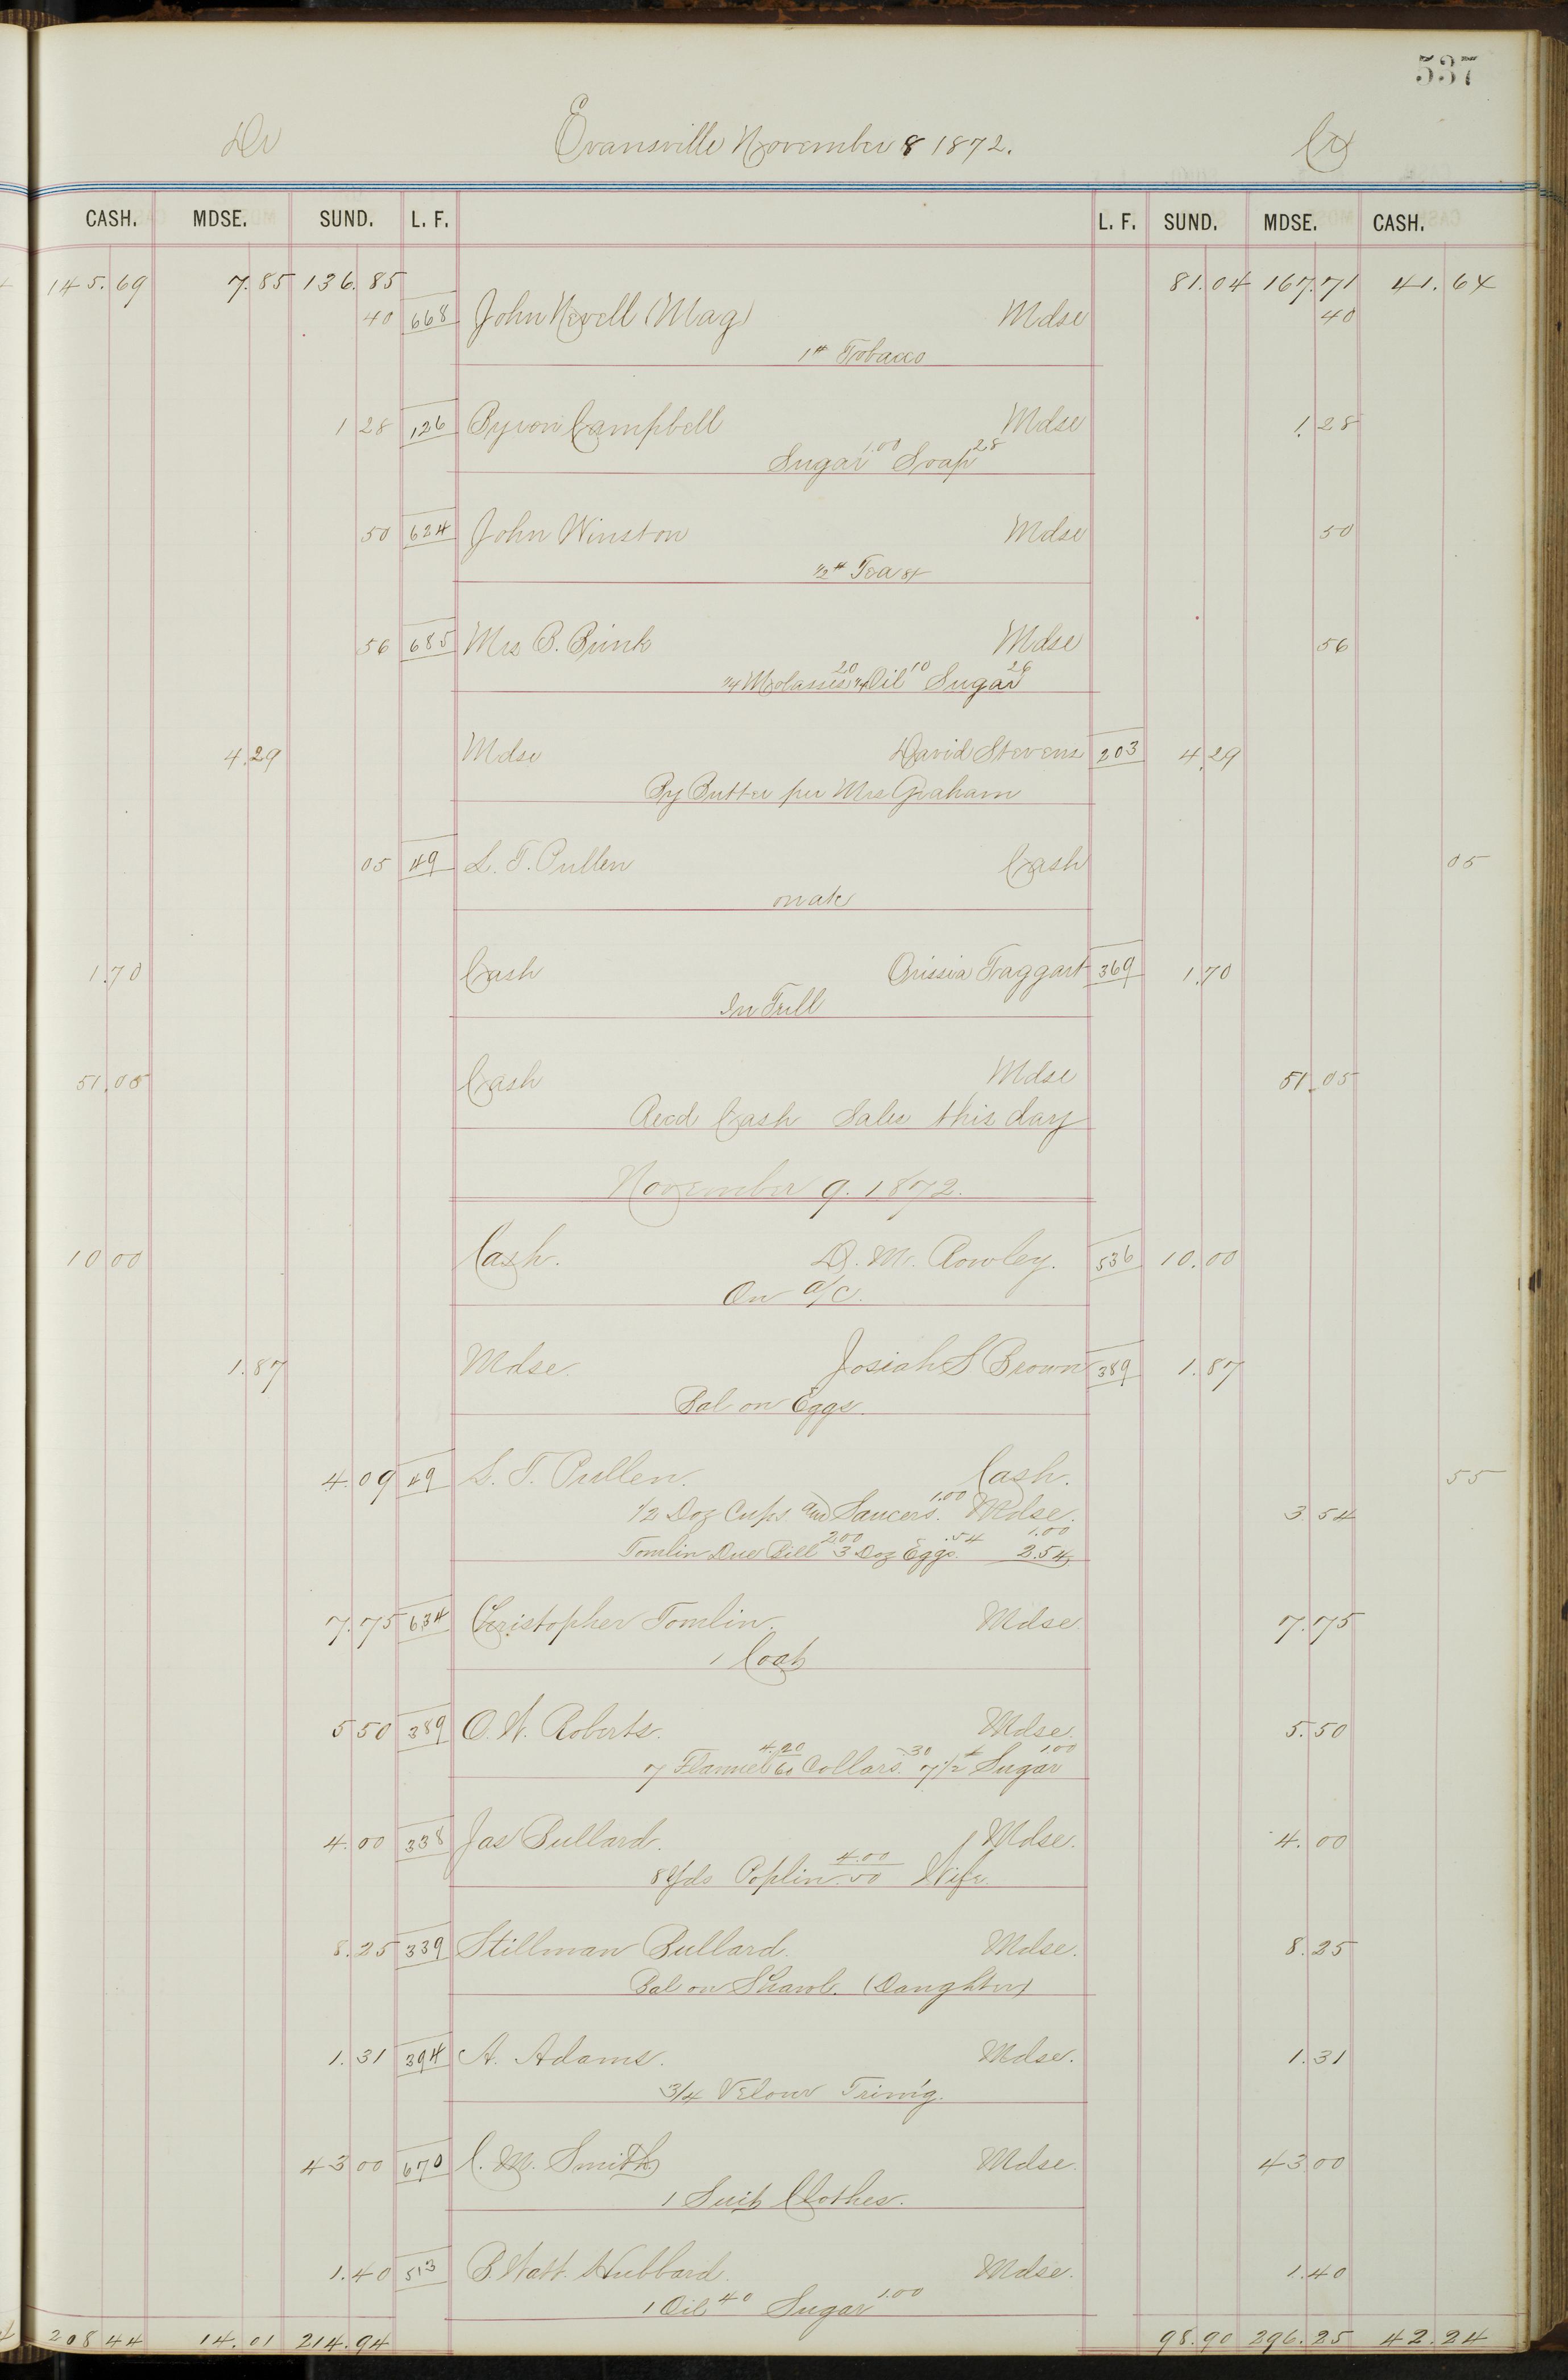 537
Dr Evansville November 8 1872. Cr
CASH. MDSE. SUND. L. F. L. F. SUND. MDSE. CASH.
145.69 7.85 136.85 81.04 167.71 41.64
40 668 John Nevell (Mag) Mdse 40
1# Tobacco
1 28 126 Byron Campbell Mdse 1.28
Sugar 1.00 Soap 28
50 624 John Winston Mdse 50
1/2# Tea
56 685 Mrs B. Brink Mdse 56
1/4 Molasses 20 1/4 Oil 10 Sugar 26
4.29 Mdse David Stevens 203 4.29
By Butter per Mrs Graham
05 49 L. T. Pullen Cash 05
on a/c
1.70 Cash Taggart 369 1.70
In Full
51.05 Cash Mdse 51.05
Recd Cash Sales this day
November 9. 1872.
10 00 Cash. D. M. Rowley. 536 10.00
On a/c.
1.87 Mdse. Josiah S. Brown 389 1.87
Bal on Eggs.
4.09 49 L. T. Pullen. Cash. 55
1/2 Doz Cups. and Saucers. 1.00 Mdse. 3 54
Tomlin Due Bill 2.00 3 Doz Eggs. .54 1.00 2.54
7.75 634 Christopher Tomlin. Mdse. 7.75
1 Coat
5 50 389 O. W. Roberts. Mdse. 5.50
7 Flannel 4.20 60 Collars. .30 7 1/2 # Sugar 1.00
4.00 338 Jas Bullard. Mdse. 4.00
8 Yds Poplin 4.00 .50 Wife.
8.25 339 Stillman Bullard. Mdse. 8.25
Bal on Shawl. (Daughter)
1.31 394 A. Adams. Mdse. 1.31
3/4 Velour Trim'g.
43 00 670 C. M. Smith Mdse. 43 00
1 Suit Clothes.
1.40 513 B. Watt. Hubbard. Mdse. 1.40
1 Oil 40 Sugar 1.00
208 44 14.01 214.94 98.90 296.25 42.24